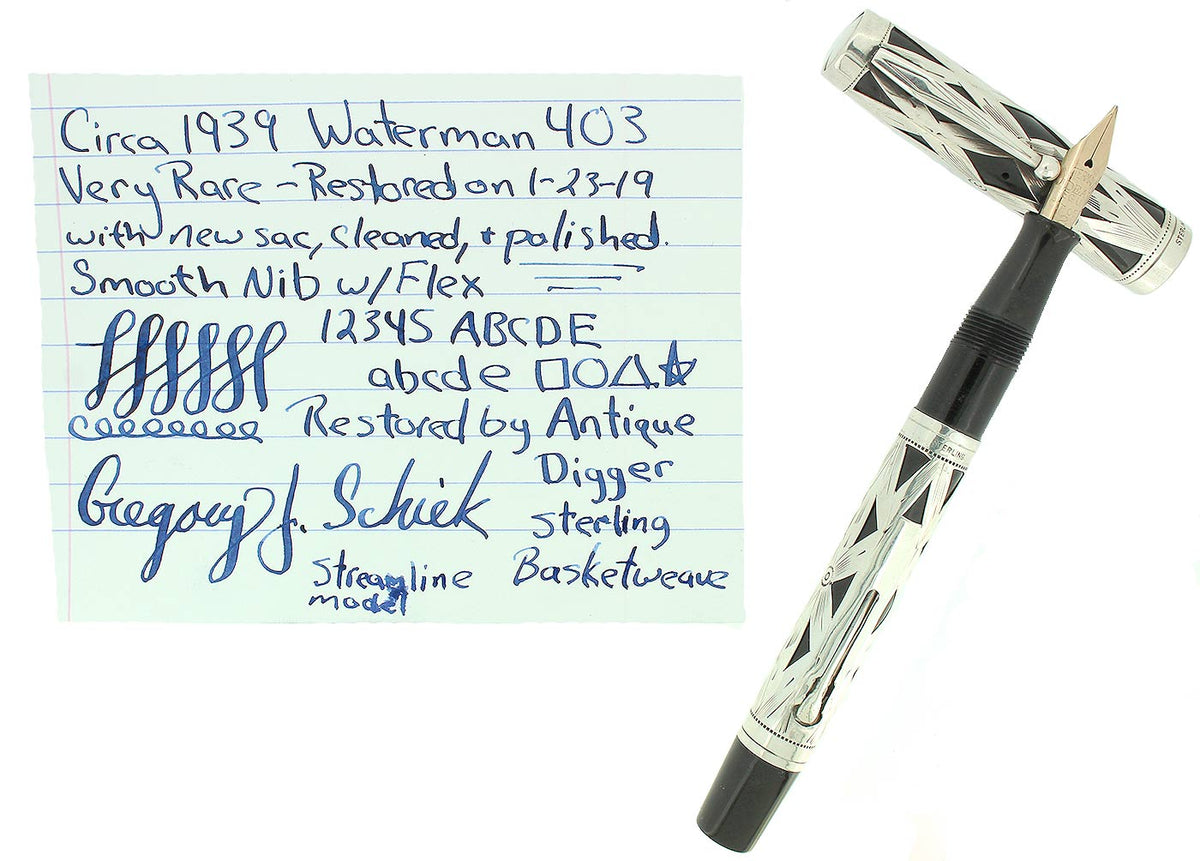 Circa 1939 Waterman 403
Very Rare - Restored on 1-23-19
with new sac, cleaned, + polished.
Smooth Nib w/Flex
12345 ABCDE
abcde
Restored by Antique
Digger
Gregory J. Schiek
sterling
Basketweave
Streamline
model
STERLING
STERL